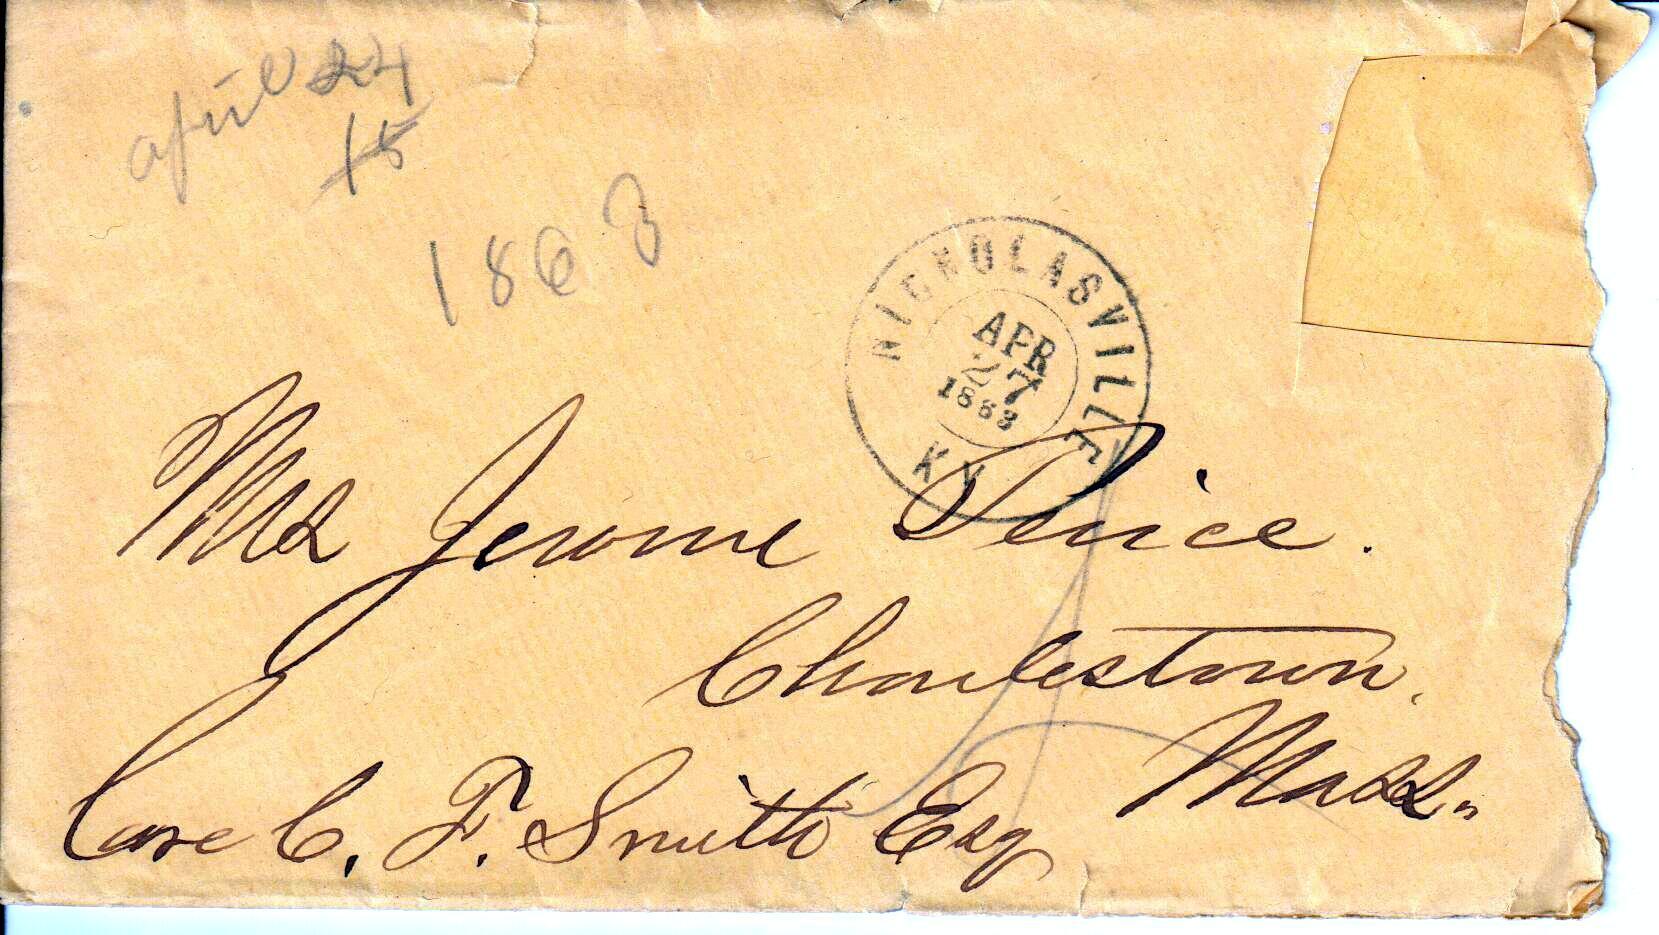 april 24
15
1863
NICHOLASVILLE
APR
27
1863
KY
Mrs Jerome
Charlestown,
Mass.
Care C. F. Smith Esq